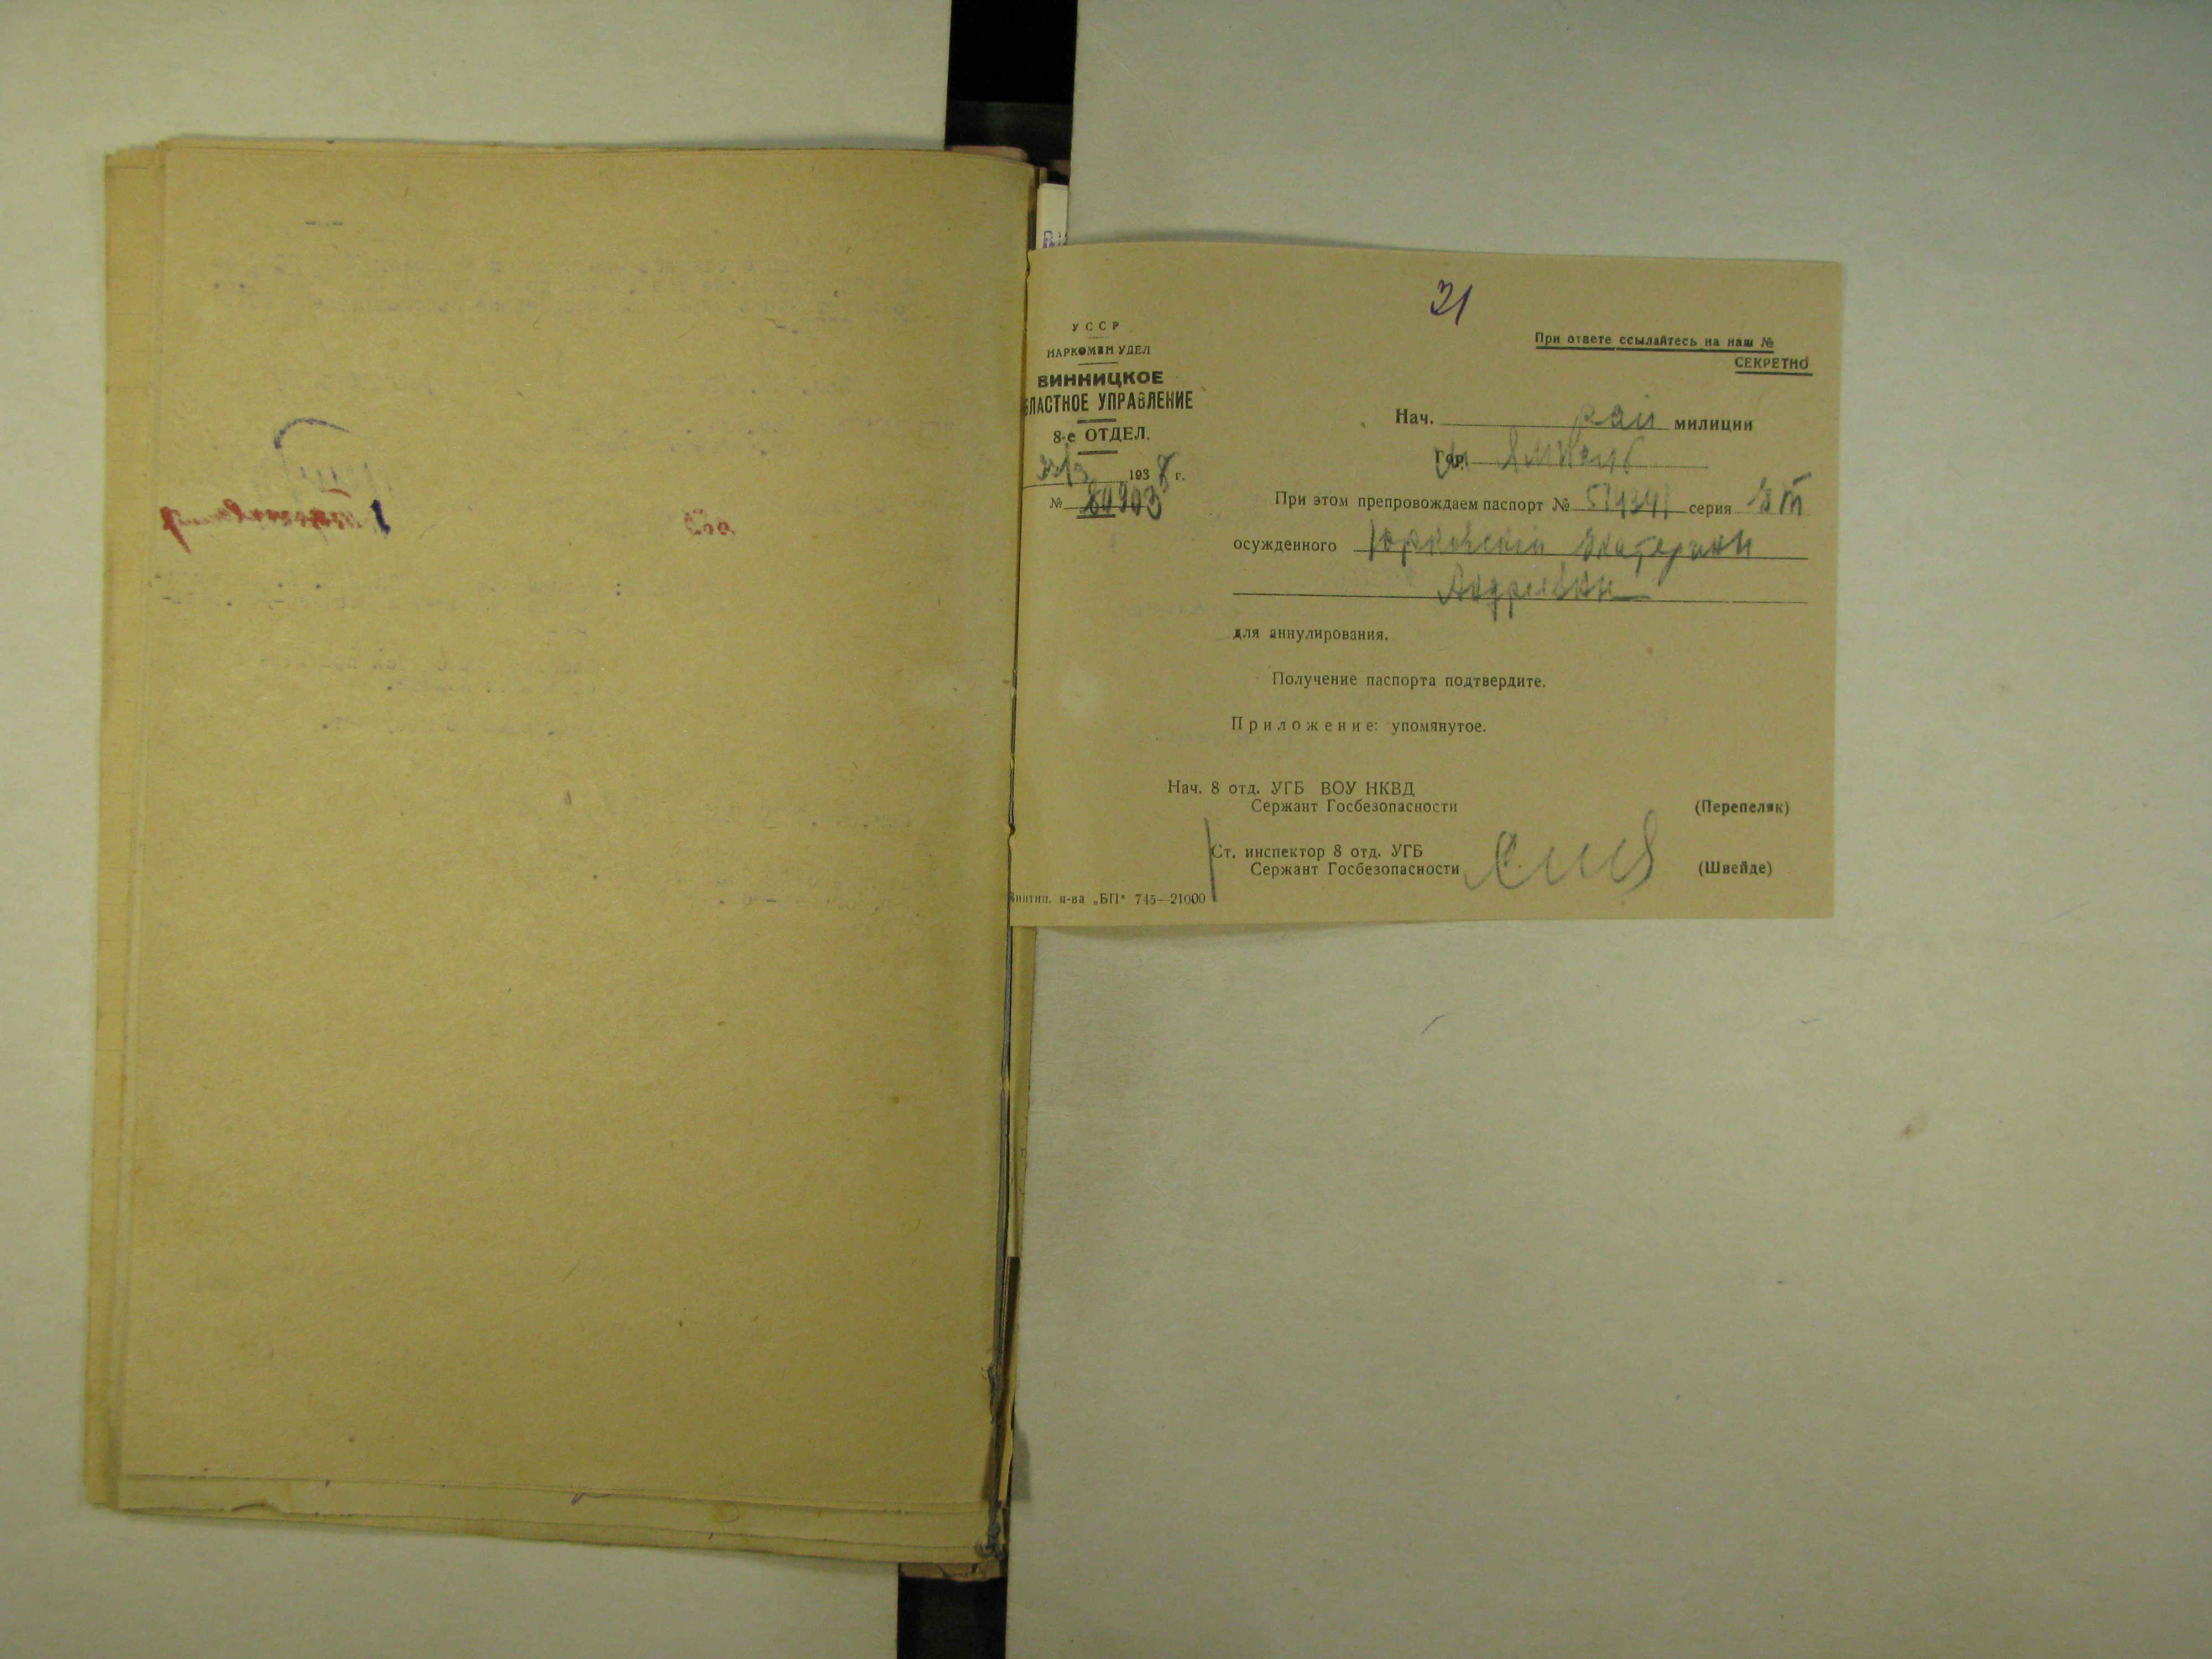 31
УССР
НАРКОМВНУДЕЛ
ВИННИЦКОЕ
БЛАСТНОЕ УПРАВЛЕНИЕ
8-е ОТДЕЛ.
1938 г.
№ 80903
При ответе ссылайтесь на наш №
СЕКРЕТНО
Нач. рай милиции
Гор. Ямполь
При этом препровождаем паспорт № серия
осужденного Юрковской Екатерины
Андреевны
для аннулирования.
Получение паспорта подтвердите.
Приложение: упомянутое.
Нач. 8 отд. УГБ ВОУ НКВД
Сержант Госбезопасности (Перепеляк)
Ст. инспектор 8 отд. УГБ
Сержант Госбезопасности (Швейде)
н-ва „БП" 745—21000